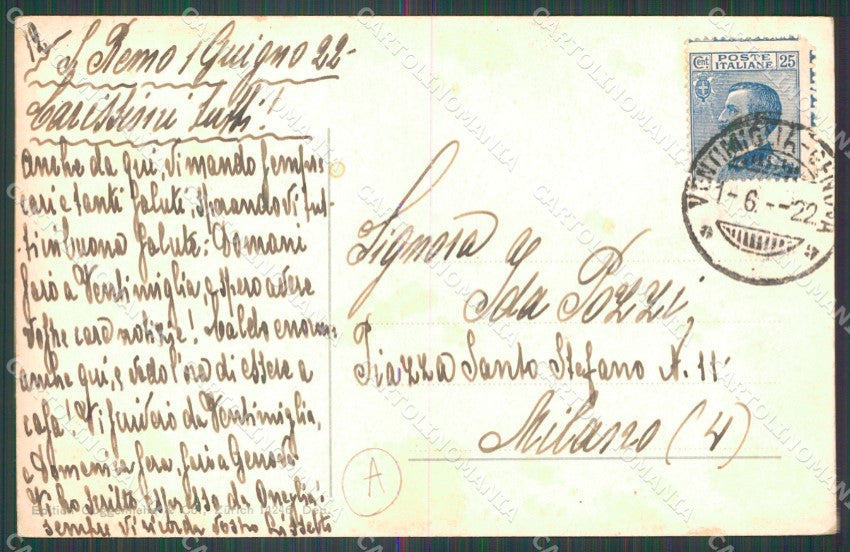 S. Remo 1 Giugno 22-
Carissimi tutti!
Anche da qui, vi mando sempre
cari e tanti saluti, sperandovi tut-
ti in buona salute. Domani
sarò a Ventimiglia, e spero avere
vostre care notizie! Caldo enorme
anche qui, e vedo l'ora di essere a
casa! Vi scriverò da Ventimiglia,
e Domenica sera, sarò a Genova
Vi ho scritto espresso da Oneglia!
sempre vi ricorda vostro
Signora
Ida Pozzi,
Piazza Santo Stefano N. 11
Milano (4)
A
Cent POSTE ITALIANE 25
VENTIMIGLIA-GENOVA
1-6.--22
Zürich
CARTOLINOMANIA